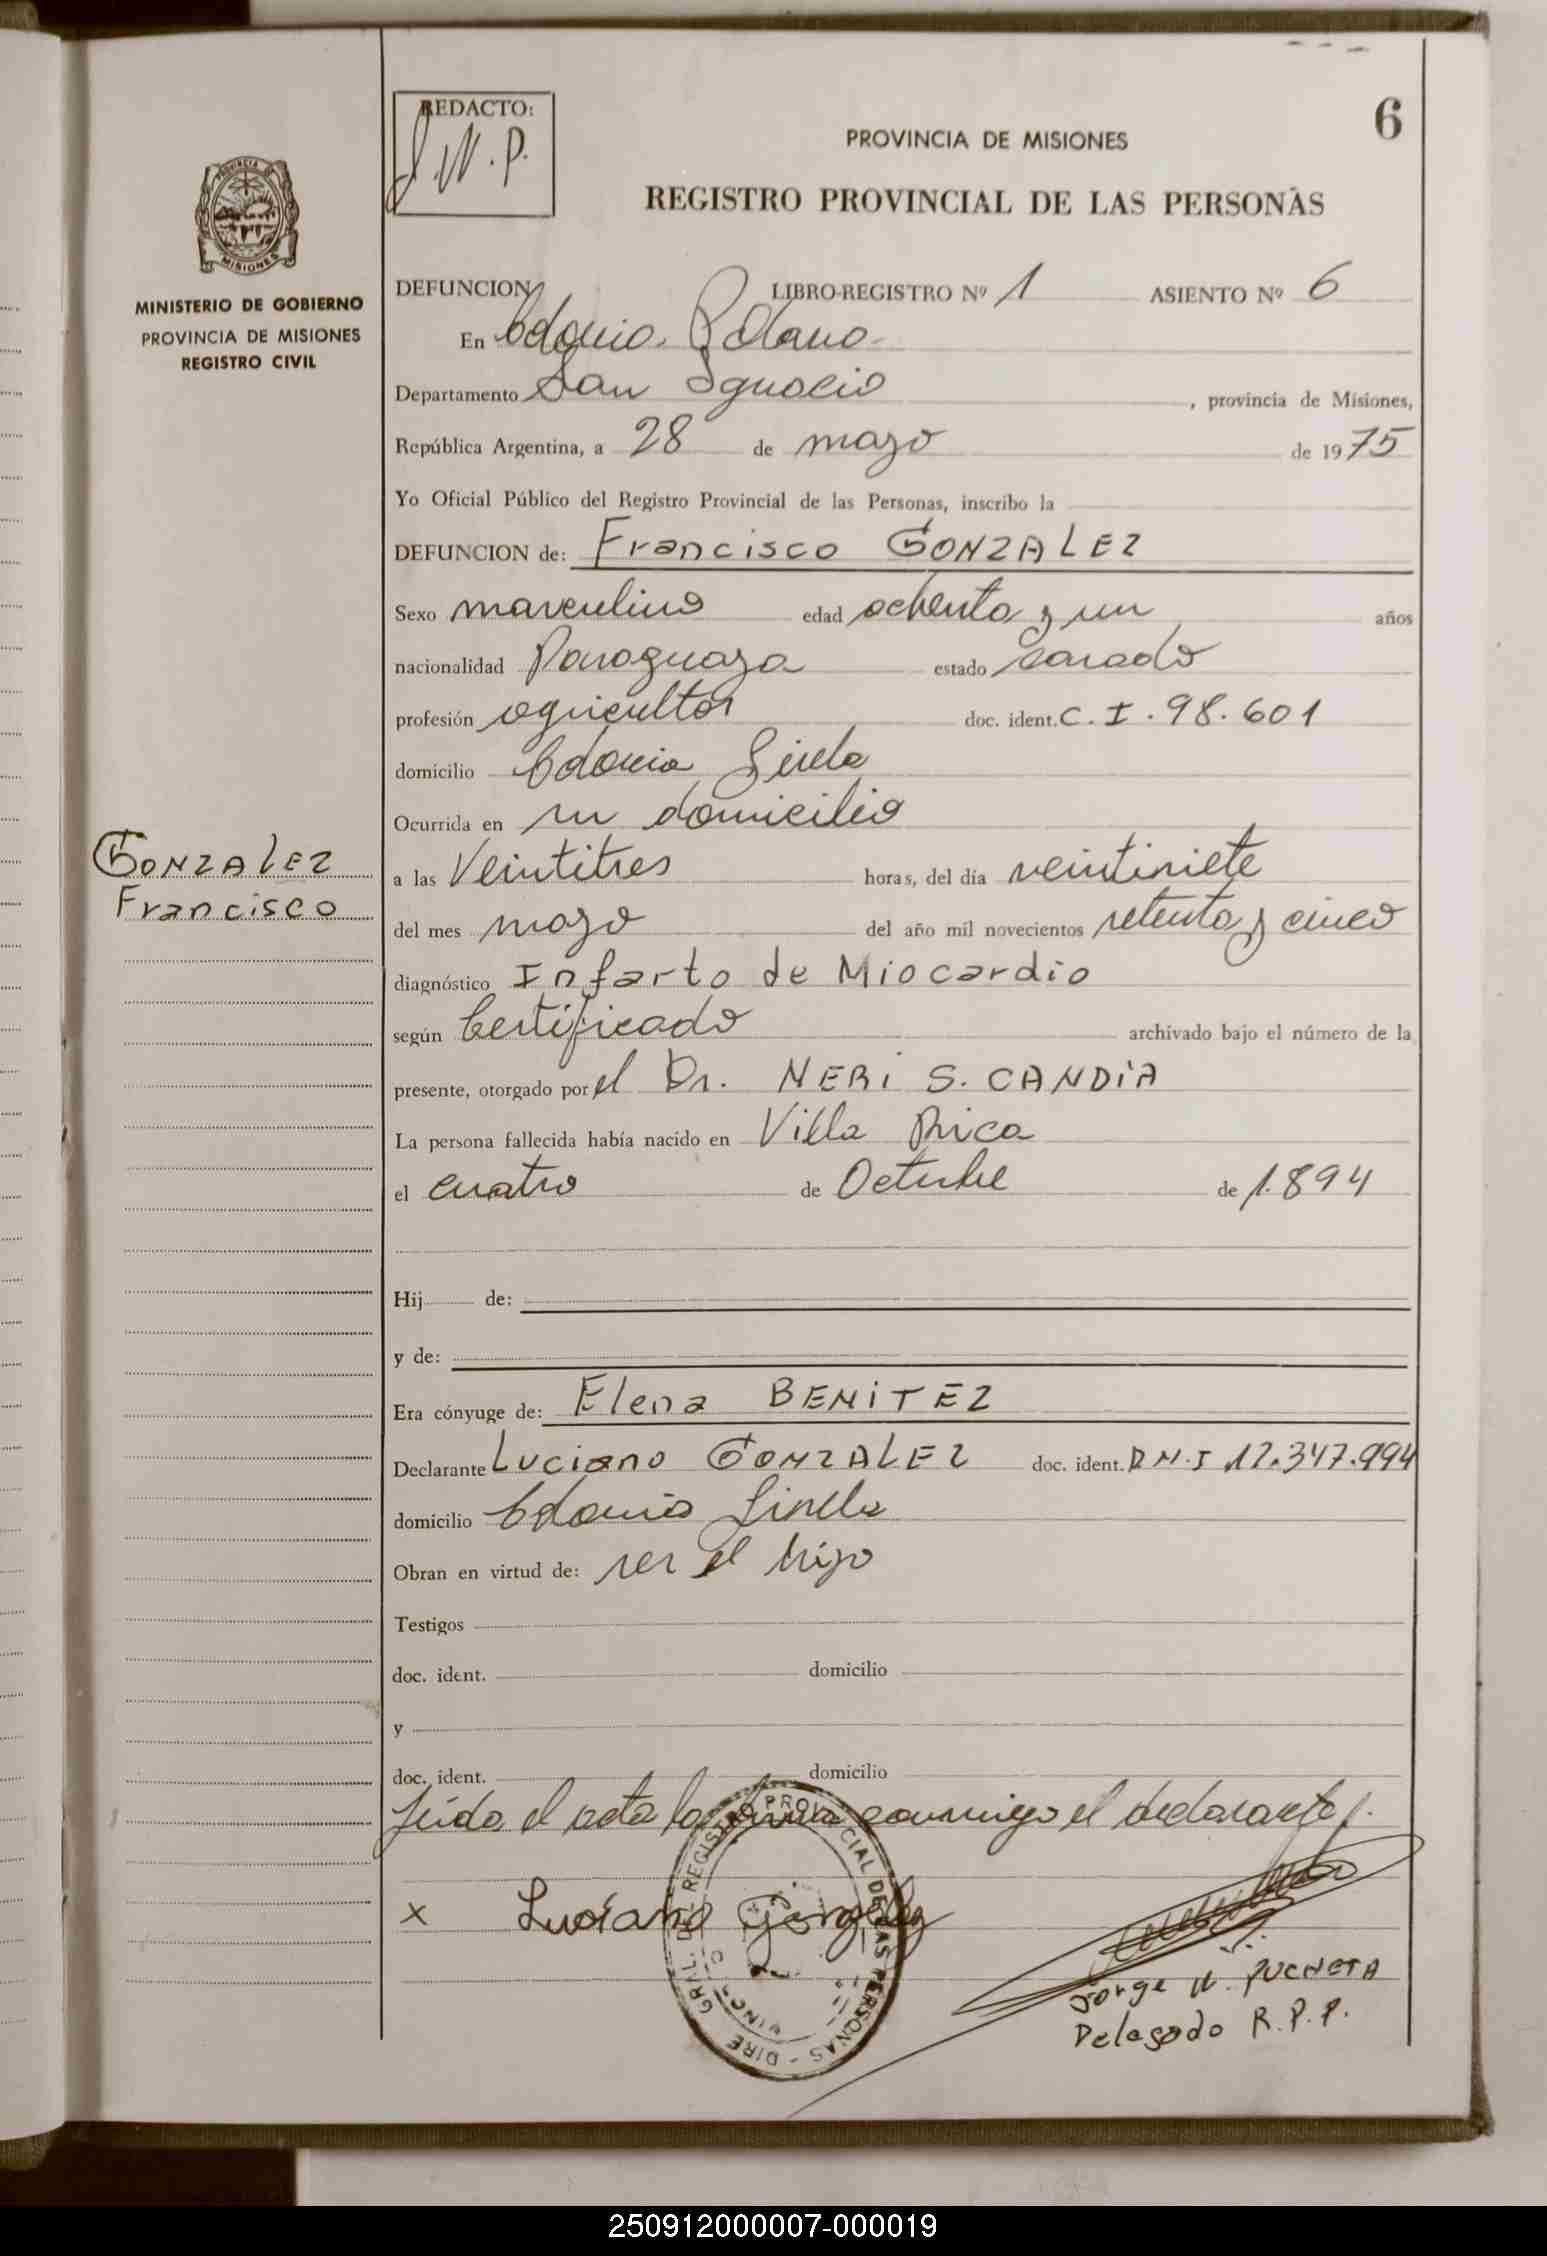 6
REDACTO:
J.W.P.
PROVINCIA DE MISIONES
REGISTRO PROVINCIAL DE LAS PERSONAS
PROVINCIA DE
MISIONES
MINISTERIO DE GOBIERNO
PROVINCIA DE MISIONES
REGISTRO CIVIL
DEFUNCION LIBRO-REGISTRO Nº 1 ASIENTO Nº 6
En Colonia Polana
Departamento San Ignacio, provincia de Misiones,
República Argentina, a 28 de mayo de 1975
Yo Oficial Público del Registro Provincial de las Personas, inscribo la
DEFUNCION de: Francisco GONZALEZ
Sexo masculino edad ochenta y un años
nacionalidad Paraguaya estado casado
profesión agricultor doc. ident. C.I. 98.601
domicilio Colonia Gisela
Ocurrida en su domicilio
GONZALEZ
Francisco
a las Veintitres horas, del día veintisiete
del mes mayo del año mil novecientos setenta y cinco
diagnóstico Infarto de Miocardio
según Certificado archivado bajo el número de la
presente, otorgado por el Dr. NERI S. CANDIA
La persona fallecida había nacido en Villa Rica
el cuatro de Octubre de 1.894
Hij de:
y de:
Era cónyuge de: Elena BENITEZ
Declarante Luciano GONZALEZ doc. ident. D.N.I. 12.347.994
domicilio Colonia Gisela
Obran en virtud de: ser el hijo
Testigos
doc. ident. domicilio
y
doc. ident. domicilio
Leida el acta la firma conmigo el declarante
x Luciano Gonzalez
DIRE GRAL. DEL REGISTRO PROVINCIAL DE LAS PERSONAS
Jorge W. PUCHETA
Delegado R.P.P.
250912000007-000019